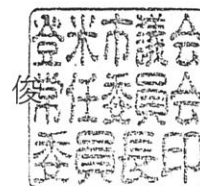 俊
登米市議会
常任委員会
委員長印